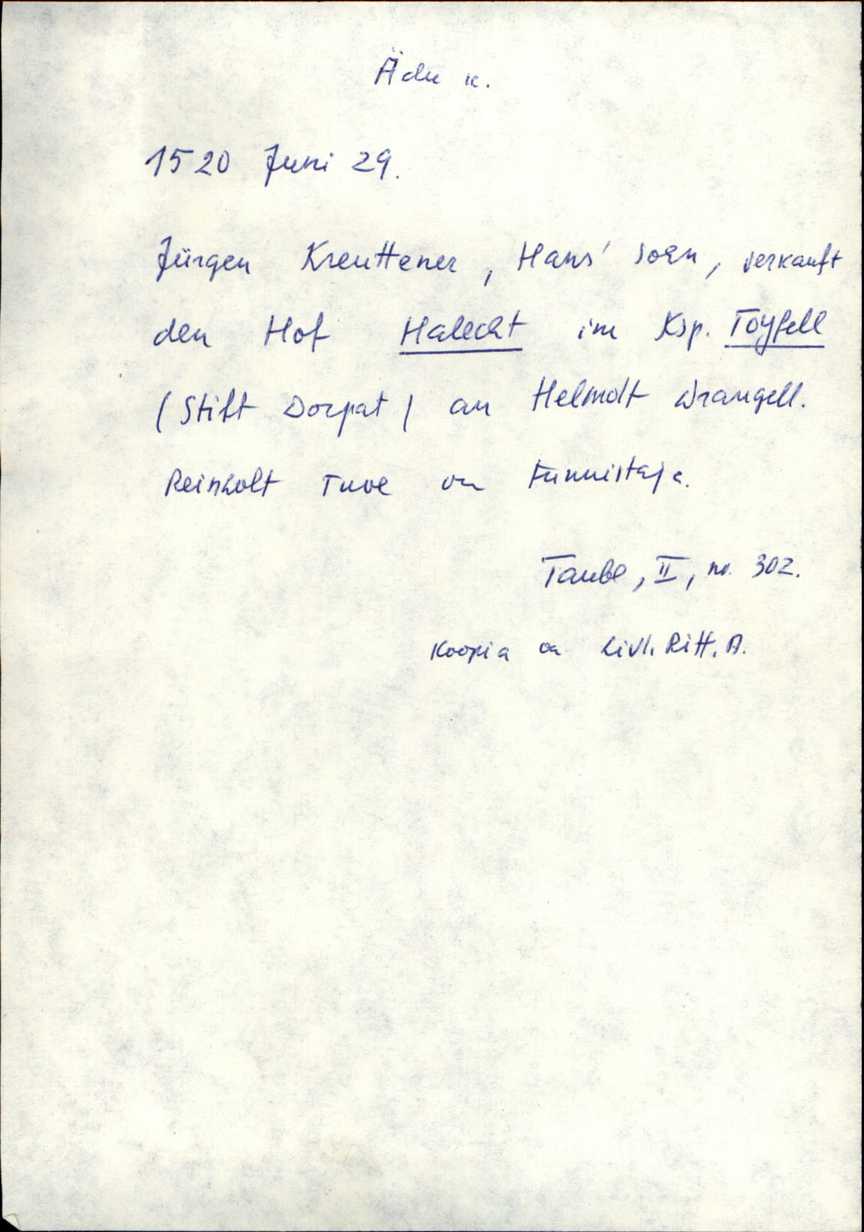 Ädu k.
1520 Juni 29.
Jürgen Kreuttener, Hans' soen, verkauft
den Hof Halecht im Ksp. Toyfell
(Stift Dorpat) an Helmolt Wrangell.
Reinholt Tuve on tunnistaja.
Taube, II, no. 302.
Koopia on Livl. Ritt. A.